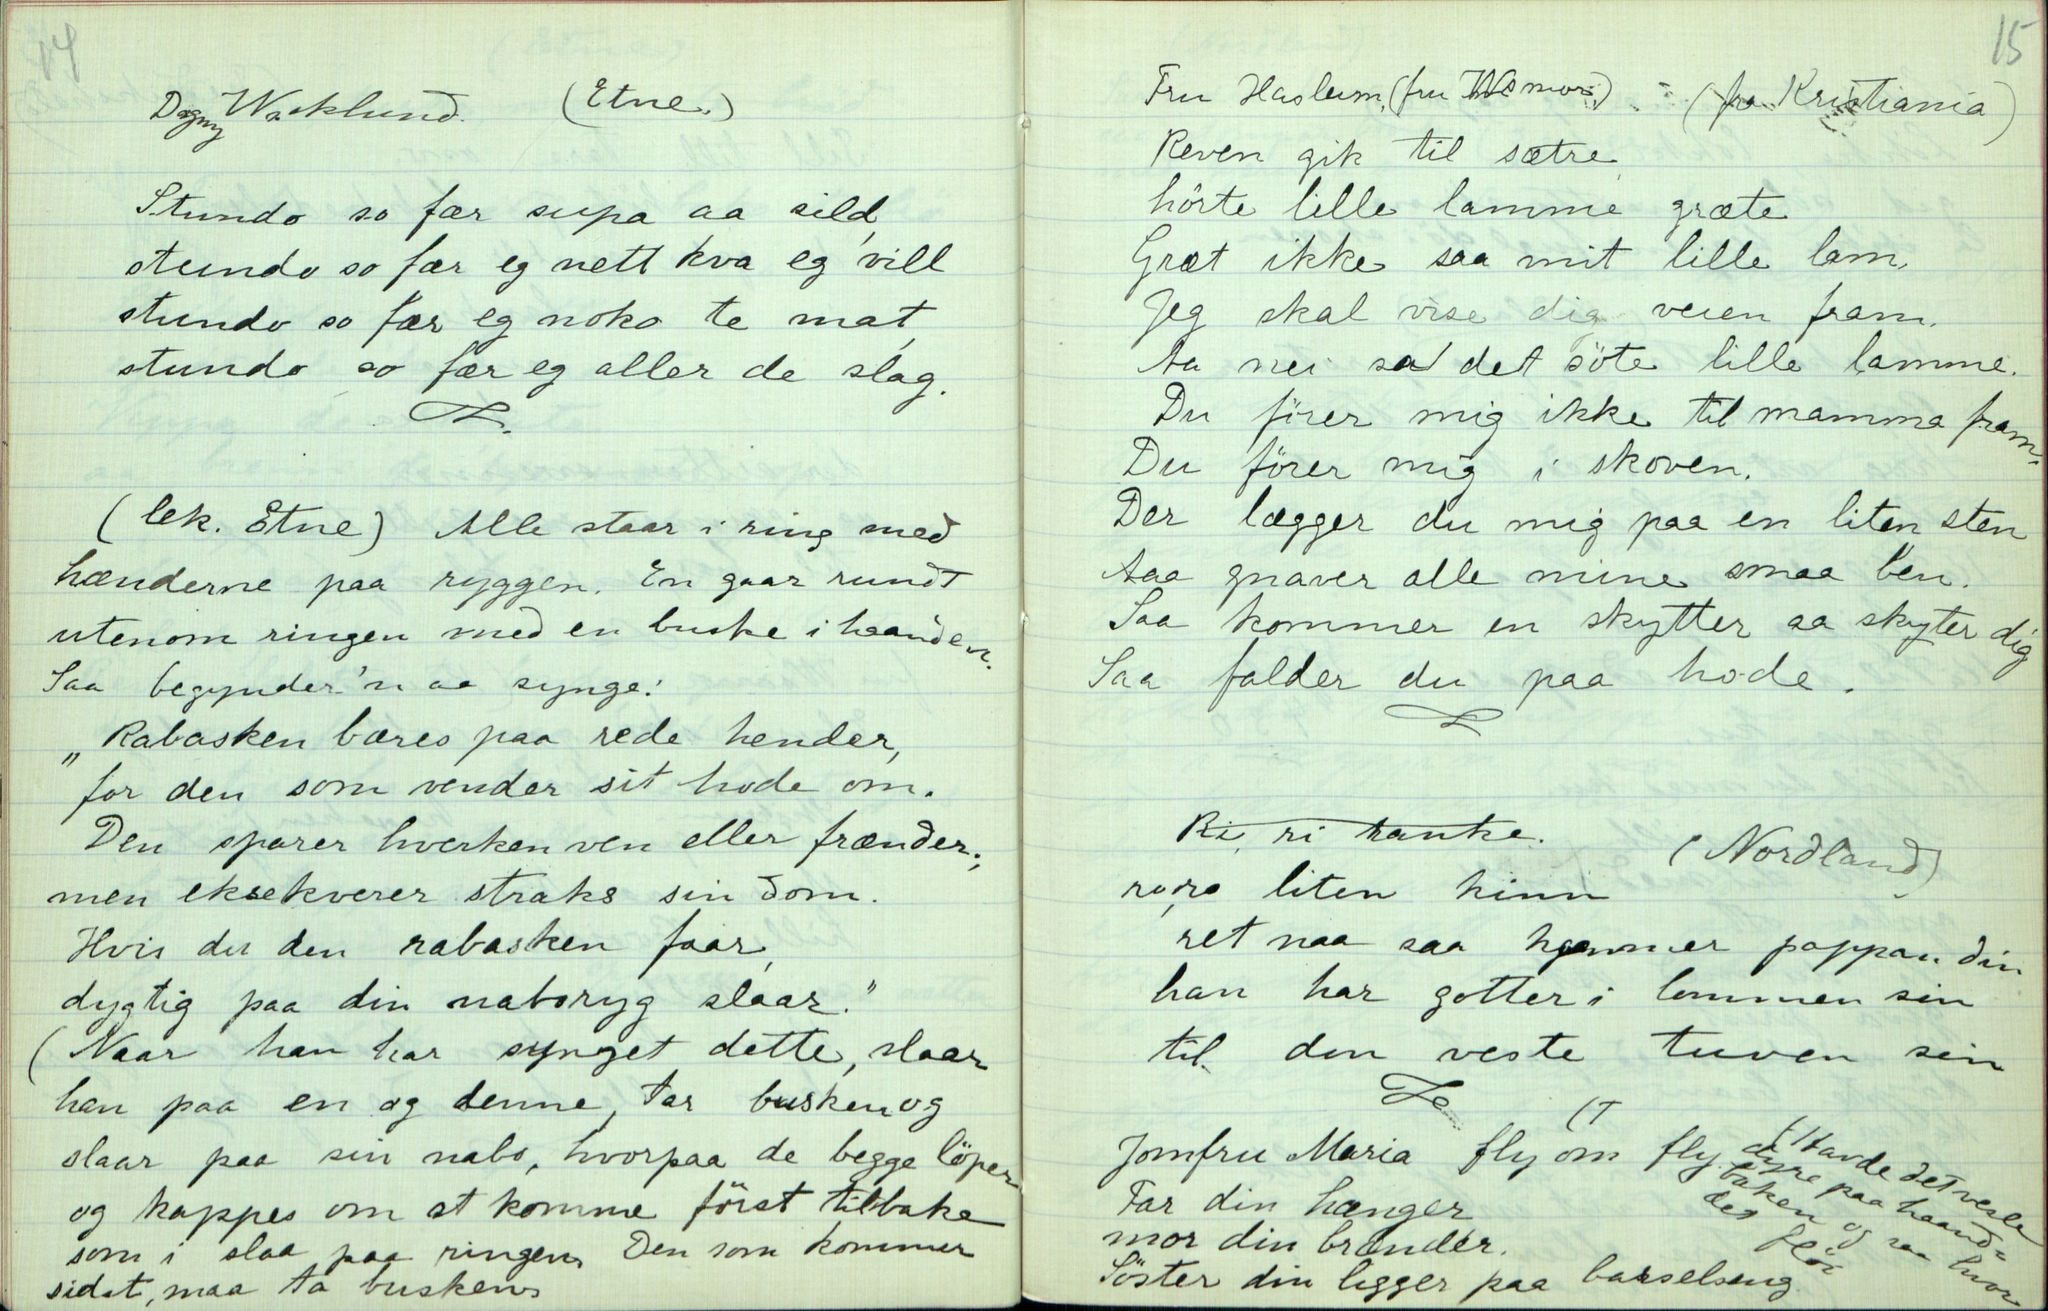 14
Dagny Wicklund. (Etne.)
Stundo so fær supa aa sild,
stundo so fær eg nett kva eg vill
stundo so fær eg noko te mat,
stundo so fær eg aller de slag.
(lek. Etne) Alle staar i ring med
hænderne paa ryggen. En gaar rundt
utenom ringen med en buske i haanden.
Saa begynder'n aa synge:
"Rabasken bæres paa rede hender,
for den som vender sit hode om.
Den sparer hverken ven eller frænder;
men eksekverer straks sin dom.
Hvis du den rabasken faar,
dygtig paa din naboryg slaar."
(Naar han har synget dette, slaar
han paa en og denne, tar busken og
slaar paa sin nabo, hvorpaa de begge löper
og kappes om at komme först tilbake
som i slaa paa ringen. Den som kommer
sidst, maa ta busken
15
Fru Haslum, (fru) (fra Kristiania)
Reven gik til sætre
hörte lille lamme græte
Græt ikke saa mit lille lam.
Jeg skal vise dig veien fram.
Aa nei sa det söte lille lamme.
Du förer mig ikke til mamma fram.
Du förer mig i skoven.
Der lægger du mig paa en liten sten
Aaa gnaver alle mine smaa ben.
Saa kommer en skytter aa skyter dig
Saa falder du paa hode.
Ri, ri ranke.
(Nordland)
ro, ro liten hinn
ret naa saa kommer pappan din
han har gotter i lommen sin
til den veste tuven sin
Jomfru Maria fly om fly
(Havde det vesle
dyre paa haand-
baken og saa hvor
det flöi
Far din hænger
mor din brænder.
Söster din ligger paa barselseng